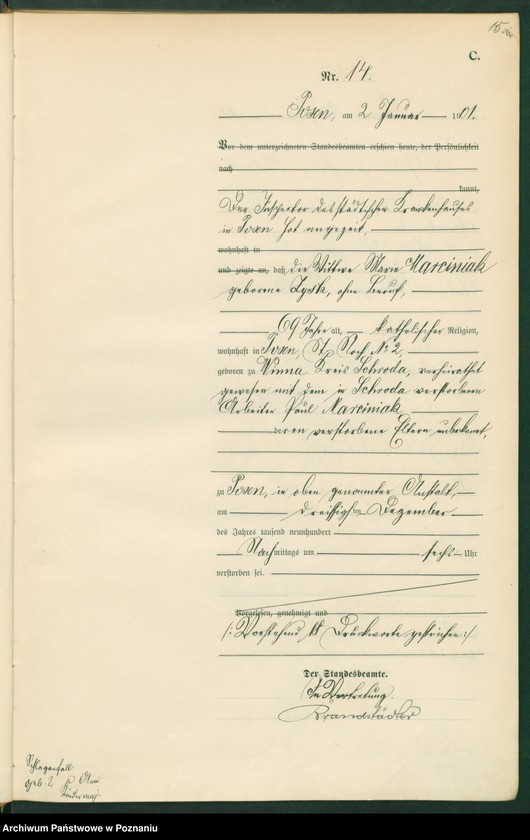 15
C.
Nr. 14.
Posen, am 2 Januar 1901.
Vor dem unterzeichneten Standesbeamten erschien heute, der Persönlichkeit
nach
kannt,
Der Inspector des städtischen Krankenhauses
in Posen hat angezeigt,
wohnhaft in
und zeigte an, daß die Wittwe Marie Marciniak
geborene Zysk, ohne Beruf,
69 Jahre alt, katholischer Religion,
wohnhaft in Posen, St. Roch No 2,
geboren zu Winna Kreis Schroda, verheirathet
gewesen mit dem in Schroda verstorbenen
Arbeiter Paul Marciniak
deren verstorbene Eltern unbekannt,
zu Posen, in oben genannter Anstalt,
am dreißigsten Dezember
des Jahres tausend neunhundert
Nachmittags um sechs Uhr
verstorben sei.
Vorgelesen, genehmigt und
/: Vorstehend Druckworte gestrichen :/
Der Standesbeamte.
In Vertretung.
Brandstädter
Schlaganfall
geb.
Archiwum Państwowe w Poznaniu